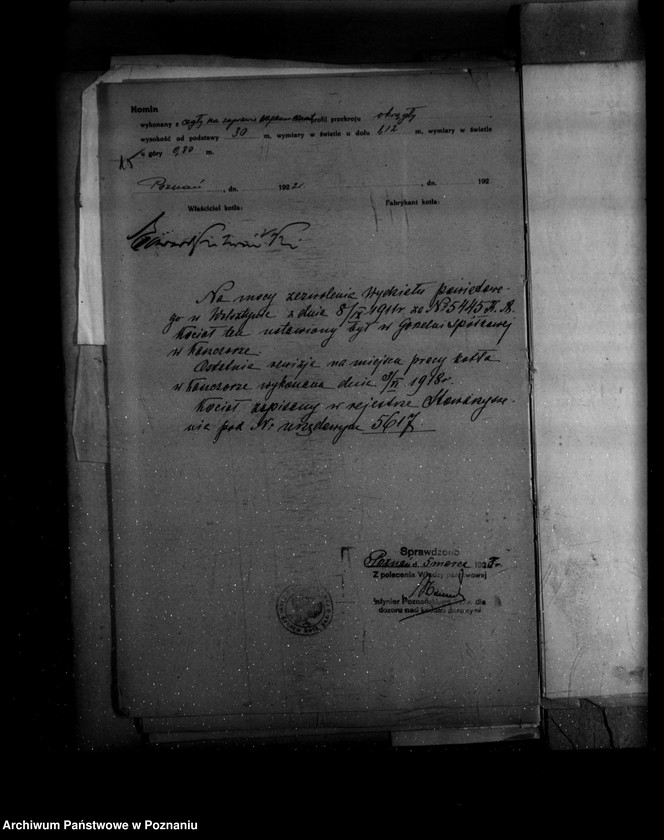 Komin
wykonany z cegły na zaprawie profil przekroju okrągły
wysokość od podstawy 30 m, wymiary w świetle u dołu 1,12 m, wymiary w świetle
u góry 0,80 m.
Poznań, dn. 192 , dn. 192
Właściciel kotła: Fabrykant kotła:
Na mocy zezwolenia Wydziału powiatowe-
go w Wolsztynie z dnia 8/IX 1911r. za No 5445 K.A.
kocioł ten ustawiony był w Gorzelni Spółkowej
w
Ostatnia rewizja na miejscu pracy kotła
w wykonana dnia 1918r.
Kocioł zapisany w rejestrze Stowarzysze-
nia pod Nr urzędowym 5617.
Sprawdzono
Poznań d. 5 marca 192
Z polecenia Władzy państwowej
Inżynier Poznańskiego Stow. dla
dozoru nad kotłami parowymi
Archiwum Państwowe w Poznaniu